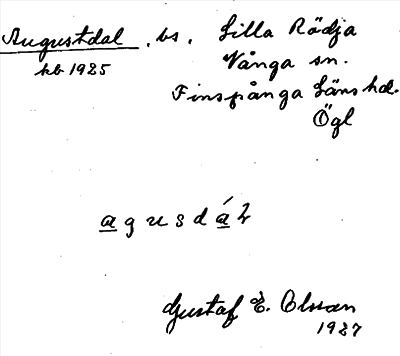 Augustdal . bs. Lilla Rödja
kb 1925 Vånga sn.
Finspånga Läns hd.
Ögl
agusdál
Gustaf E. Olsson
1927